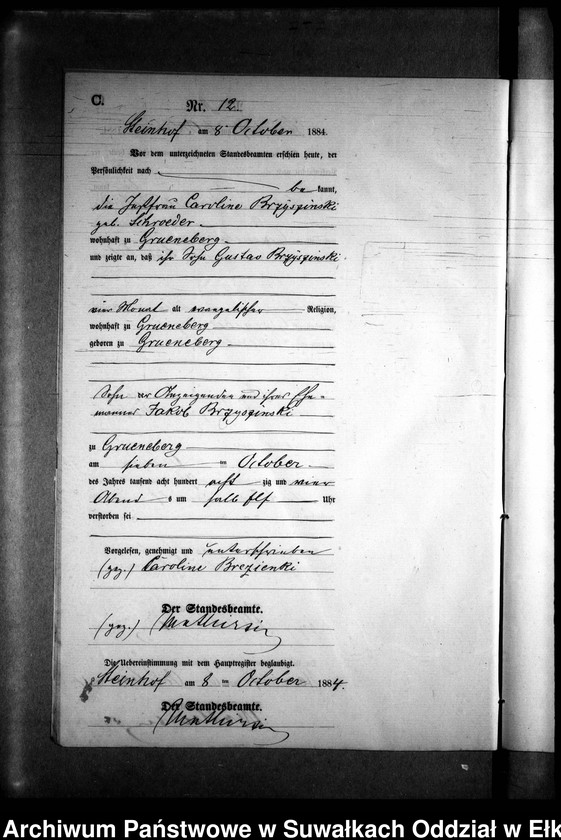 C.
Nr. 12
Steinhof am 8 October 1884.
Vor dem unterzeichneten Standesbeamten erschien heute, der
Persönlichkeit nach
be kannt,
die Jastfrau Caroline Brzyszinski
geb. Schroeder
wohnhaft zu Grueneberg
und zeigte an, daß ihr Sohn Gustav Brzyszinski
vier Monat alt evangelischer Religion,
wohnhaft zu Grueneberg
geboren zu Grueneberg
Sohn der Anzeigenden und ihres Ehe-
mannes Jakob Brzyszinski
zu Grueneberg
am sieben ten October
des Jahres tausend acht hundert acht zig und vier
Abend s um halb elf Uhr
verstorben sei
Vorgelesen, genehmigt und unterschrieben
(gez.) Caroline Brezienki
Der Standesbeamte.
(gez.)
Die Uebereinstimmung mit dem Hauptregister beglaubigt.
Steinhof am 8 ten October 1884.
Der Standesbeamte.
Archiwum Państwowe w Suwałkach Oddział w Ełk